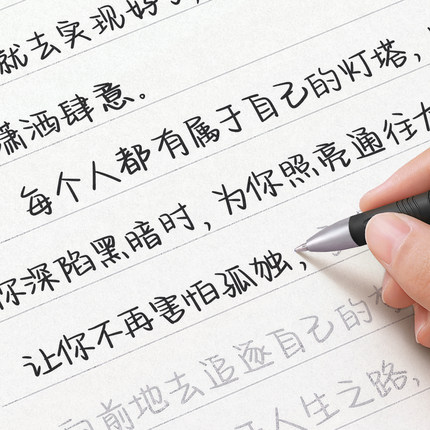 就去实现好
潇洒肆意。
每个人都有属于自己的灯塔，
你深陷黑暗时，为你照亮通往
让你不再害怕孤独，
前地去追逐自己的
人生之路，